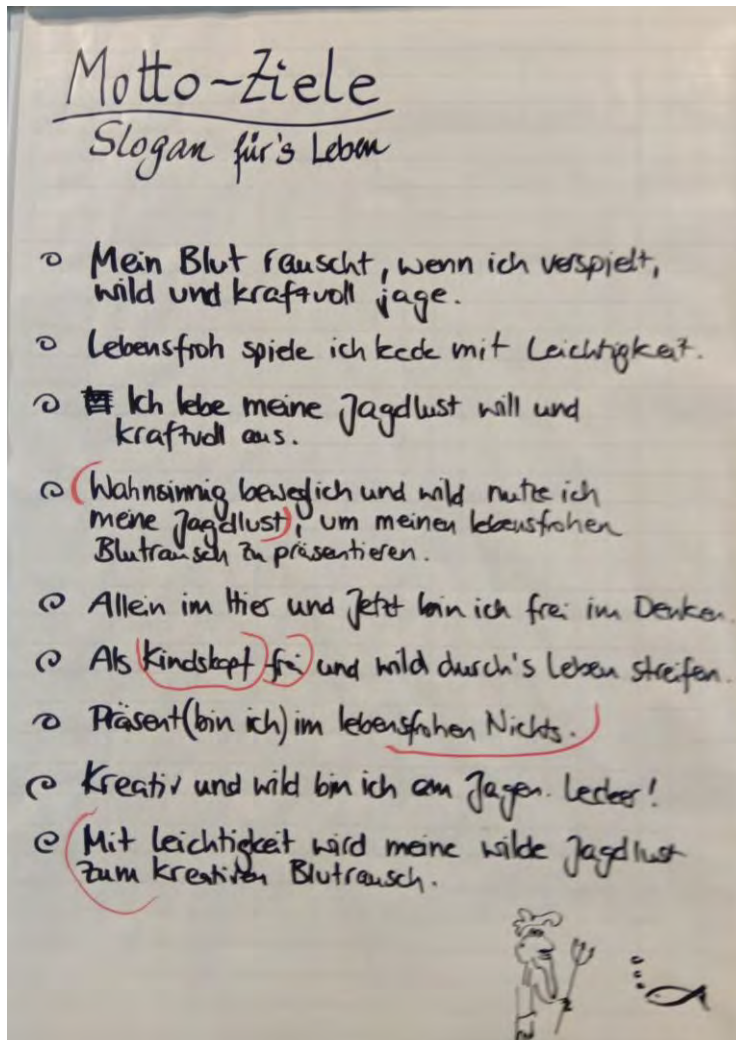 Motto-Ziele
Slogan für's Leben
Mein Blut rauscht, wenn ich verspielt,
wild und kraftvoll jage.
Lebensfroh spiele ich kecke mit Leichtigkeit.
Ich lebe meine Jagdlust will und
kraftvoll aus.
(Wahnsinnig beweglich und wild nutze ich
meine Jagdlust), um meinen lebensfrohen
Blutrausch zu präsentieren.
Allein im Hier und Jetzt bin ich frei im Denken.
Als (Kindskopf frei) und wild durch's Leben streifen.
Präsent (bin ich) im lebensfrohen Nichts.
Kreativ und wild bin ich am Jagen. Lecker!
Mit Leichtigkeit wird meine wilde Jagdlust
zum kreativen Blutrausch.